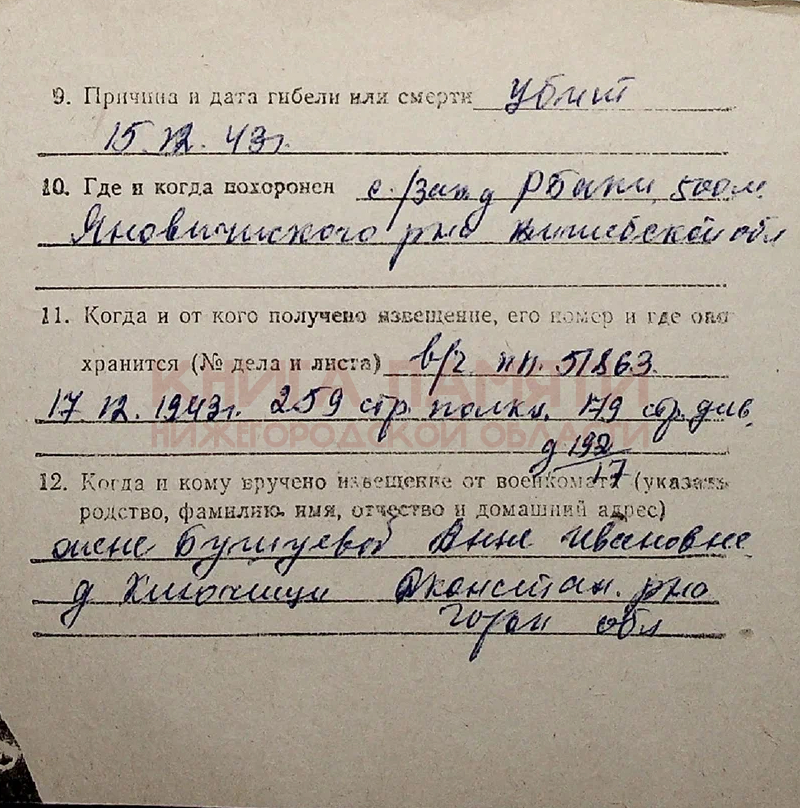 9. Причина и дата гибели или смерти убит
15.12.43г.
10. Где и когда похоронен с./запд 500м.
Яновичиского рно витебской обл
11. Когда и от кого получено извещение, его номер и где оно
хранится (№ дела и листа) в/ч пп. 51863
17.12.1943г. 259 стр полка. 179 стр. див.
КНИГА ПАМЯТИ
НИЖЕГОРОДСКОЙ ОБЛАСТИ
д 192/17
12. Когда и кому вручено извещение от военкомата (указать
родство, фамилию, имя, отчество и домашний адрес)
жене Бушуевой Анне Ивановне
д рно
Горьк обл